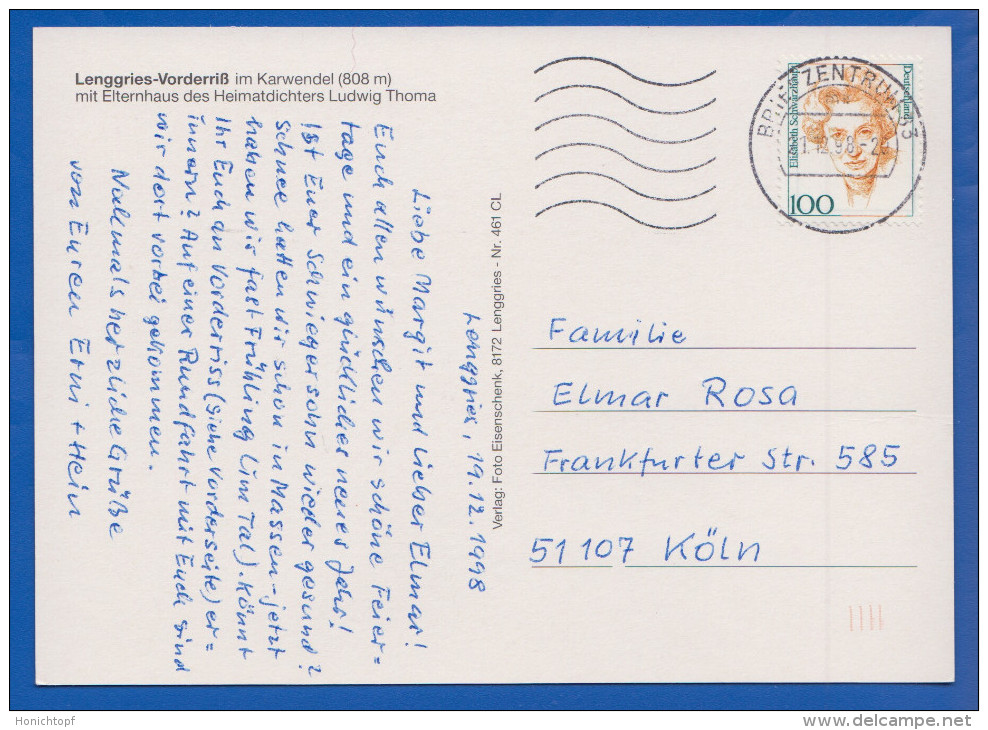 Lenggries-Vorderriß im Karwendel (808 m)
mit Elternhaus des Heimatdichters Ludwig Thoma
Lenggries, 19.12.1998
Liebe Margit und lieber Elmar!
Euch allen wünschen wir schöne Feier=
tage und ein glückliches neues Jahr!
Ist Euer Schwiegersohn wieder gesund?
Schnee hatten wir schon in Massen - jetzt
haben wir fast Frühling (im Tal). Könnt
Ihr Euch an Vorderriss (siehe Vorderseite) er=
innern? Auf einer Rundfahrt mit Euch sind
wir dort vorbei gekommen.
Nallmals herzliche Grüße
von Euren Erni + Hein
Verlag: Foto Eisenschenk, 8172 Lenggries - Nr. 461 CL
BRIEFZENTRUM 83
Elisabeth Schwarzhaupt
Deutschland
100
Familie
Elmar Rosa
Frankfurter Str. 585
51107 Köln
Honichtopf
delcampe.net